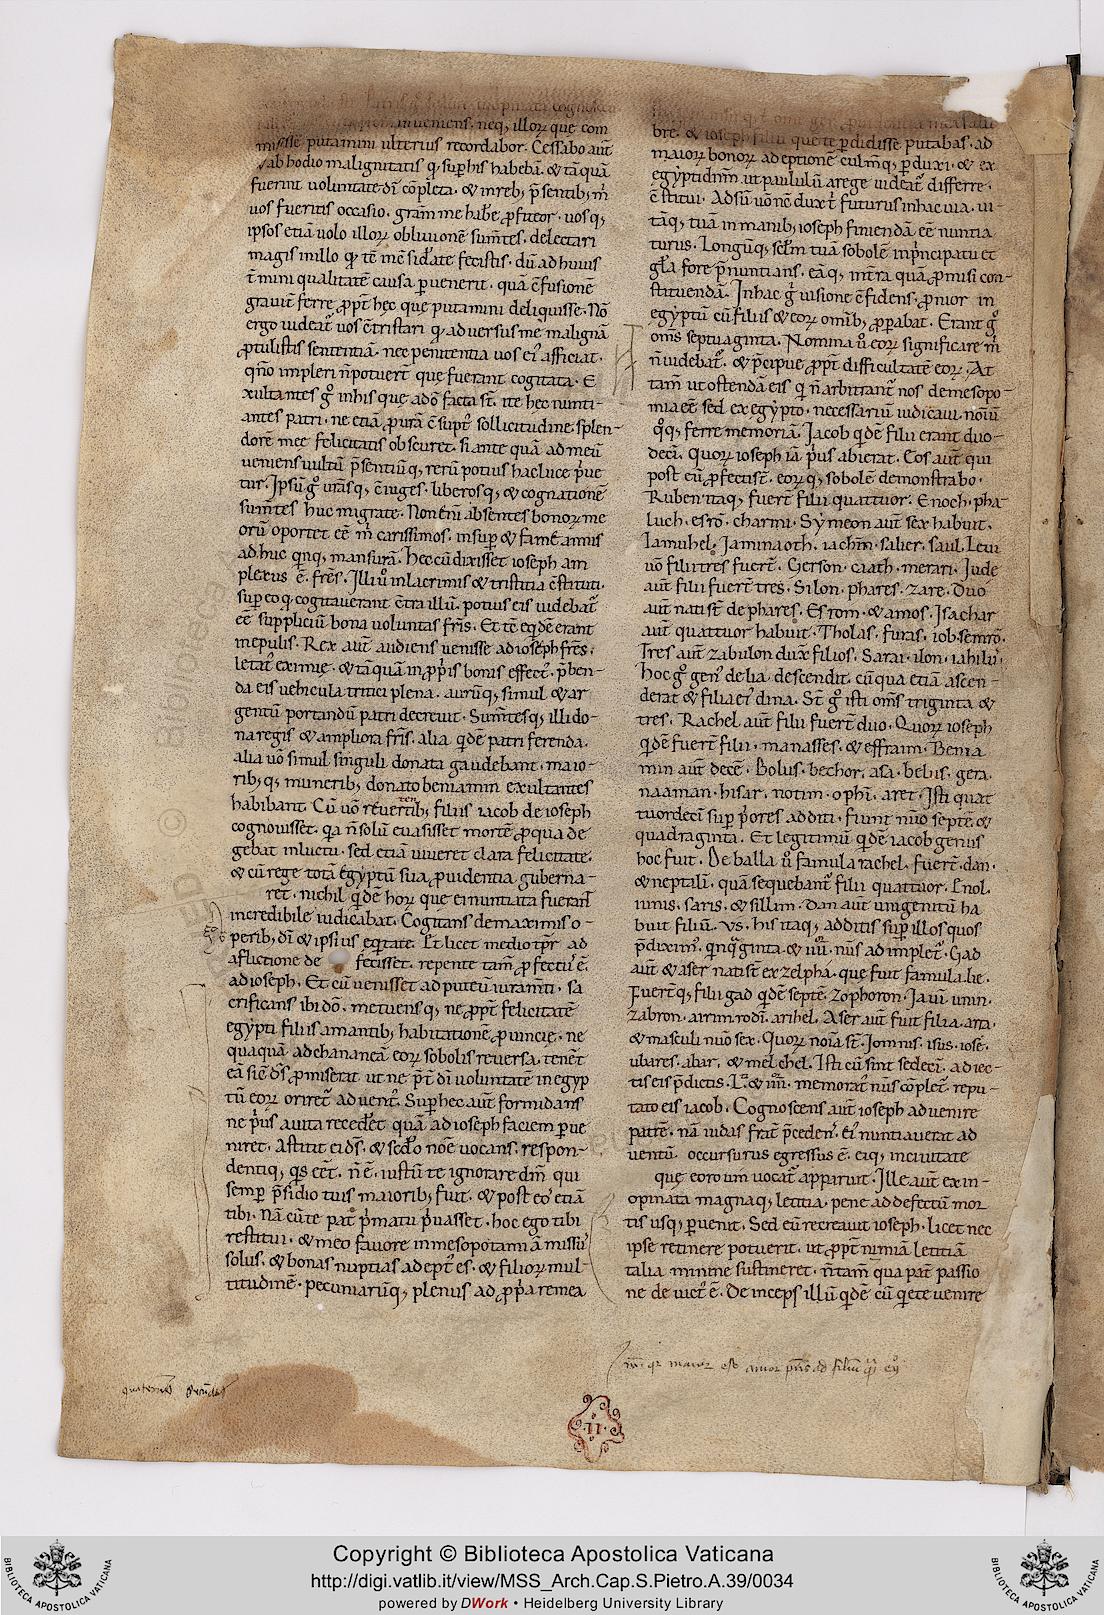 inveniens. neq; illoꝝ que com
misisse putamini ulterius recordabor. Cessabo aūt
ab hodio malignitatis q̇ sup his habebā. & tāquā
fuerint voluntate dī cōpleta. & in reb; p̄sentib; m̄
vos fueritis occasio. gratiam me habere ꝓfiteor. vos q;
ipsos etiā volo illoꝝ oblivionē sum̄tes. delectari
magis in illo
gravit̄ ferre ꝓpt̄ hec que putamini deliquisse. Nō
ergo videat̄ vos c̄tristari q̇ adversus me malignā
ꝓtulistis sententiā. nec penitentia vos eī afficiat.
qn̄o impleri n̄ potuert̄ que fuerant cogitata. E
xultantes g̊ in his que a dō facta st̄. ite hec nunti
antes patri. ne etiā ꝓ vrā c̄supt̄ sollicitudine splen
dorē mee felicitatis obscuret. si ante quā ad meū
veniens vultū p̄sentiū q; rerū potius hac luce p̄ve
tur. Ipsū g̊ vrās q; c̄iuges. liberosq; & cognationē
sum̄tes huc migrate. Non enī absentes bonoꝝ me
orū oportet eē m̄ carissimos. insup & fam̄ē annis
adhuc q̇nq; mansurā. Hec cū dixisset ioseph am
plexus ē. frēs. Illi ů in lacrimis & tristitia c̄stituti.
sup eo q̇ cogitaverant c̄tra illū. potius eis videbat̄
eē suppliciū bona voluntas fr̄is. Et tc̄ eq̇dē erant
in epulis. Rex aūt audiens venisse ad ioseph frēs.
letat̄ eximie. & tāquā in ꝓpriis bonis effect̄. p̄ben
da eis vehicula tritici plena. aurūq; simul & ar
gentū portandū patri decrevit. Sum̄tesq; illi do
na regis & ampliora fr̄is. alia q̇dē patri ferenda.
alia vō simul singuli donata gaudebant. maio
rib; q; munerib; donato beniamin exultantes
habibant. Cū vō revertentib; filiis iacob de ioseph
cognovisset. qa n̄ solū evasisset mortē ꝓ qua de
gebat in luctu. sed etiā viveret clara felicitate.
& cū rege totā egyptū sua ꝓvidentia guberna
ret. nichil q̇dē hoꝝ que ei nuntiata fuerant
incredibile iudicabat. Cogitans de maximis o
perib; dī & ipsius eq̇tate. Et licet medio tp̄r ad
aflictione de fecisset. repente tam̄ ꝓfectur̄ ē.
ad ioseph. Et cū venisset ad puteū iuram̄ti. sa
crificans ibi dō. metuens q; ne ꝓpt̄ felicitatē
egypti filiis amantib; habitationē ꝓvincie. ne
quaquā ad chananeā eoꝝ sobolis reversa. tenēt
eā sic d̄s ꝓmiserat ut ne p̄t̄ dī voluntatē in egyp
tū eoꝝ oriret̄ advent̄. Sup hec aūt formidans
ne p̄us a vita recedet̄ quā ad ioseph faciem p̄ve
niret. Astitit ei d̄s. & sedo nōe vocans. respon
dentiq; q̇s eēt. n̄ ē. iustū te ignorare dn̄m qui
semp̄ p̄sidio tuis maiorib; fuit. & post eos̄ etiā
tibi. Nā cū te pat̄ p̄matu p̄vasset. hoc ego tibi
restitui. & meo favore in mesopotamiā missū
solus. & bonas nuptias adept̄ es. & filioꝝ mul
titudinē. pecuniarūq; plenus ad ꝓpria remea
bre. & ioseph filiū quē te p̄didisse putabas. ad
maioꝝ bonoꝝ adeptionē culmq; p̄duxi. & ex
egypti dn̄m ut paululū a rege videat̄ differre.
c̄stitui. Adsū vō nc̄ dux t̄ futurus in hac via. vi
tāq; tuā in manib; ioseph finiendā eē nuntia
turus. Longūq; sc̄lm tuā sobolē in p̄ncipatu et
gl̄a fore p̄nuntians. eāq; in t̄ra quā ꝓmisi con
stituendā. In hac g̊ visione c̄fidens. ꝓnior in
egyptū cū filiis & eoꝝ omīb; ꝓperabat. Erant g̊
om̄s septuaginta. Nomina ů eoꝝ significare m̄
n̄ videbat̄. & p̄cipue ꝓpt̄ difficultatē eoꝝ. At
tam̄ ut ostendā eis q̇ n̄ arbitrant̄ nos de mesopo
mia eē sed ex egypto. necessariū iudicavi. noīū
qq; ferre memoriā. Iacob q̇dē filii erant duo
deci. Quoꝝ ioseph iā p̄us abierat. Eos aūt qui
post eū ꝓfecti st̄. eoꝝ q; sobolē demonstrabo.
Ruben itaq; fuert̄ filii quattuor. Enoch. pha
luch. esrō. charmi. Symeon aūt sex habuit.
Iamuhel. Iaminaoth. iachim. salier. saul. Levi
vō filii tres fuert̄. Gerson. caath. merari. Iude
aūt filii fuert̄ tres. Silon. phares. zare. Duo
aūt nati st̄ de phares. Esrom. & amos. Isachar
aūt quattuor habuit. Tholas. furas. iob. semrō.
Tres aūt zabulon dux̄ filios. Sarai. ilon. iahilū.
Hoc g̊ gen̄ de lia. descendit. cū qua etiā ascen
derat & filia ei̇ dina. St̄ g̊ isti om̄s triginta &
tres. Rachel aūt filii fuert̄ duo. Quoꝝ ioseph
q̇dē fuert̄ filii. manasses. & effraim. Benia
min aūt decē. Bolus. bechor. asa. bebiis. gera.
naaman. hisar. notim. ophī. aret. Isti quat
tuordecī sup p̄ores additi. fiunt nūo septē &
quadraginta. Et legitimū q̇dē iacob genus
hoc fuit. De balla ů famula rachel. fuert̄ dan.
& neptalī. quā sequebant̄ filii quattuor. Enol.
iunis. saris. & sillim. Dan aūt unigenitū ha
buit filiū. vs. his itaq; additis sup illos quos
p̄dixim̄. q̇nq̇ginta. & iiii. nūs adimplet̄. Gad
aūt & aser nati st̄ ex zelpha. que fuit famula lie.
Fuert̄ q; filii gad q̇dē septē. zophoron. Iaui. unin.
zabron. Aser aūt fuit filia. ara.
& masculi nūo sex. Quoꝝ noīa st̄. Iomnis. isus. iosē.
ubares. abar. & melchel. Isti cū sint sedecī. adiec
tis eis p̄dictis. memorat̄ nūs cōplet̄. repu
tato eis iacob. Cognoscens aūt ioseph advenire
patrē. nā iudas frat̄ p̄cedens̄. ei nuntiaverat ad
ventū. occursurus egressus ē. eiq; in civitate
que eoroim vocat̄ apparuit. Ille aūt ex in
opinata magnaq; letitia. pene ad defectū mor
tis usq; p̄venit. Sed eū recreavit ioseph. licet nec
ipse retinere potuerit. ut ꝓpt̄ nimiā letitiā
talia minime sustineret. n̄ tam̄ qua pat̄ passio
ne devict̄ ē. Deinceps illū q̇dē cū q̇ete venire
maior amor ad filiū
quaternus secundus
.II.
Copyright © Biblioteca Apostolica Vaticana
http://digi.vatlib.it/view/MSS_Arch.Cap.S.Pietro.A.39/0034
powered by DWork • Heidelberg University Library
BIBLIOTECA APOSTOLICA VATICANA
BIBLIOTECA APOSTOLICA VATICANA